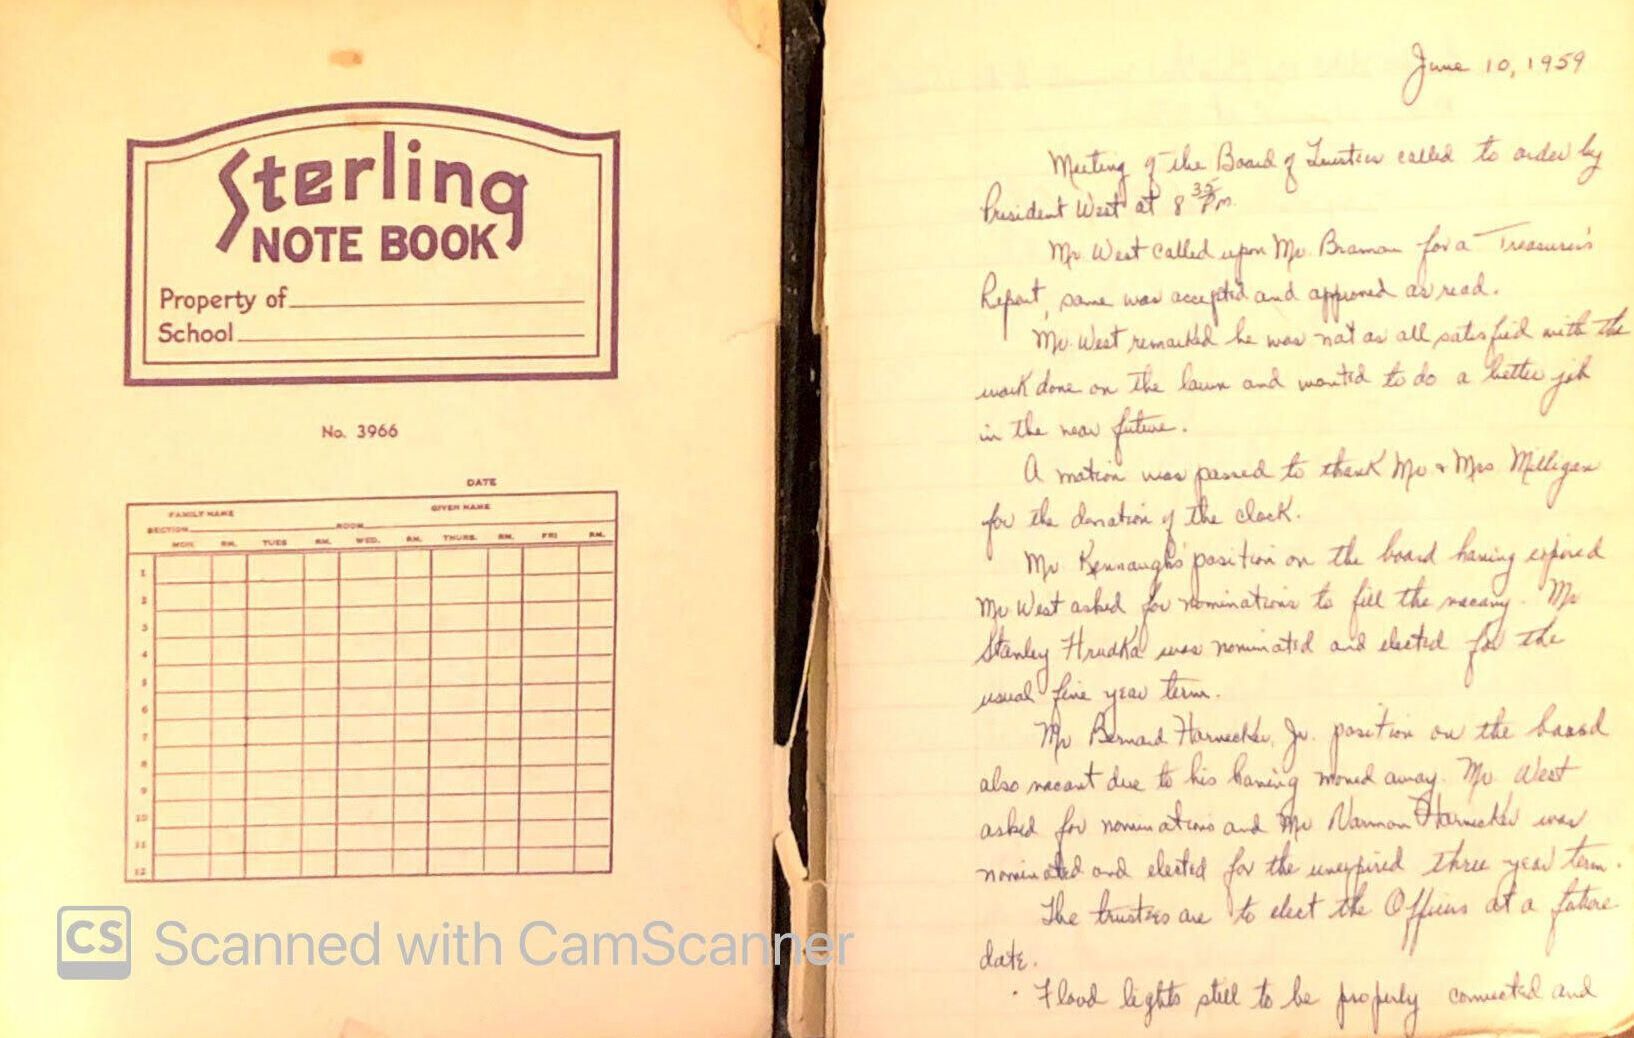 Sterling
NOTE BOOK
Property of
School
No. 3966
DATE
FAMILY NAME GIVEN NAME
SECTION ROOM
MON. RM. TUES RM. WED. RM. THURS. RM. FRI RM.
1
2
3
4
5
6
7
8
9
10
11
12
CS Scanned with CamScanner
June 10, 1959
Meeting of the Board of Trustees called to order by
President West at 8 35 P.m.
Mr. West called upon Mr. Braman for a Treasurer's
Report, same was accepted and approved as read.
Mr. West remarked he was not as all satisfied with the
work done on the lawn and wanted to do a better job
in the near future.
A motion was passed to thank Mr + Mrs Milligan
for the donation of the clock.
Mr Kennaugh's position on the board having expired
Mr West asked for nominations to fill the vacany. Mr
Stanley Hrudka was nominated and elected for the
usual five year term.
Mr Bernard Harnecker, Jr. position on the board
also vacant due to his having moved away. Mr. West
asked for nominations and Mr Norman Harnecker was
nominated and elected for the unexpired three year term.
The trustees are to elect the Officers at a future
date.
Flood lights still to be properly connected and